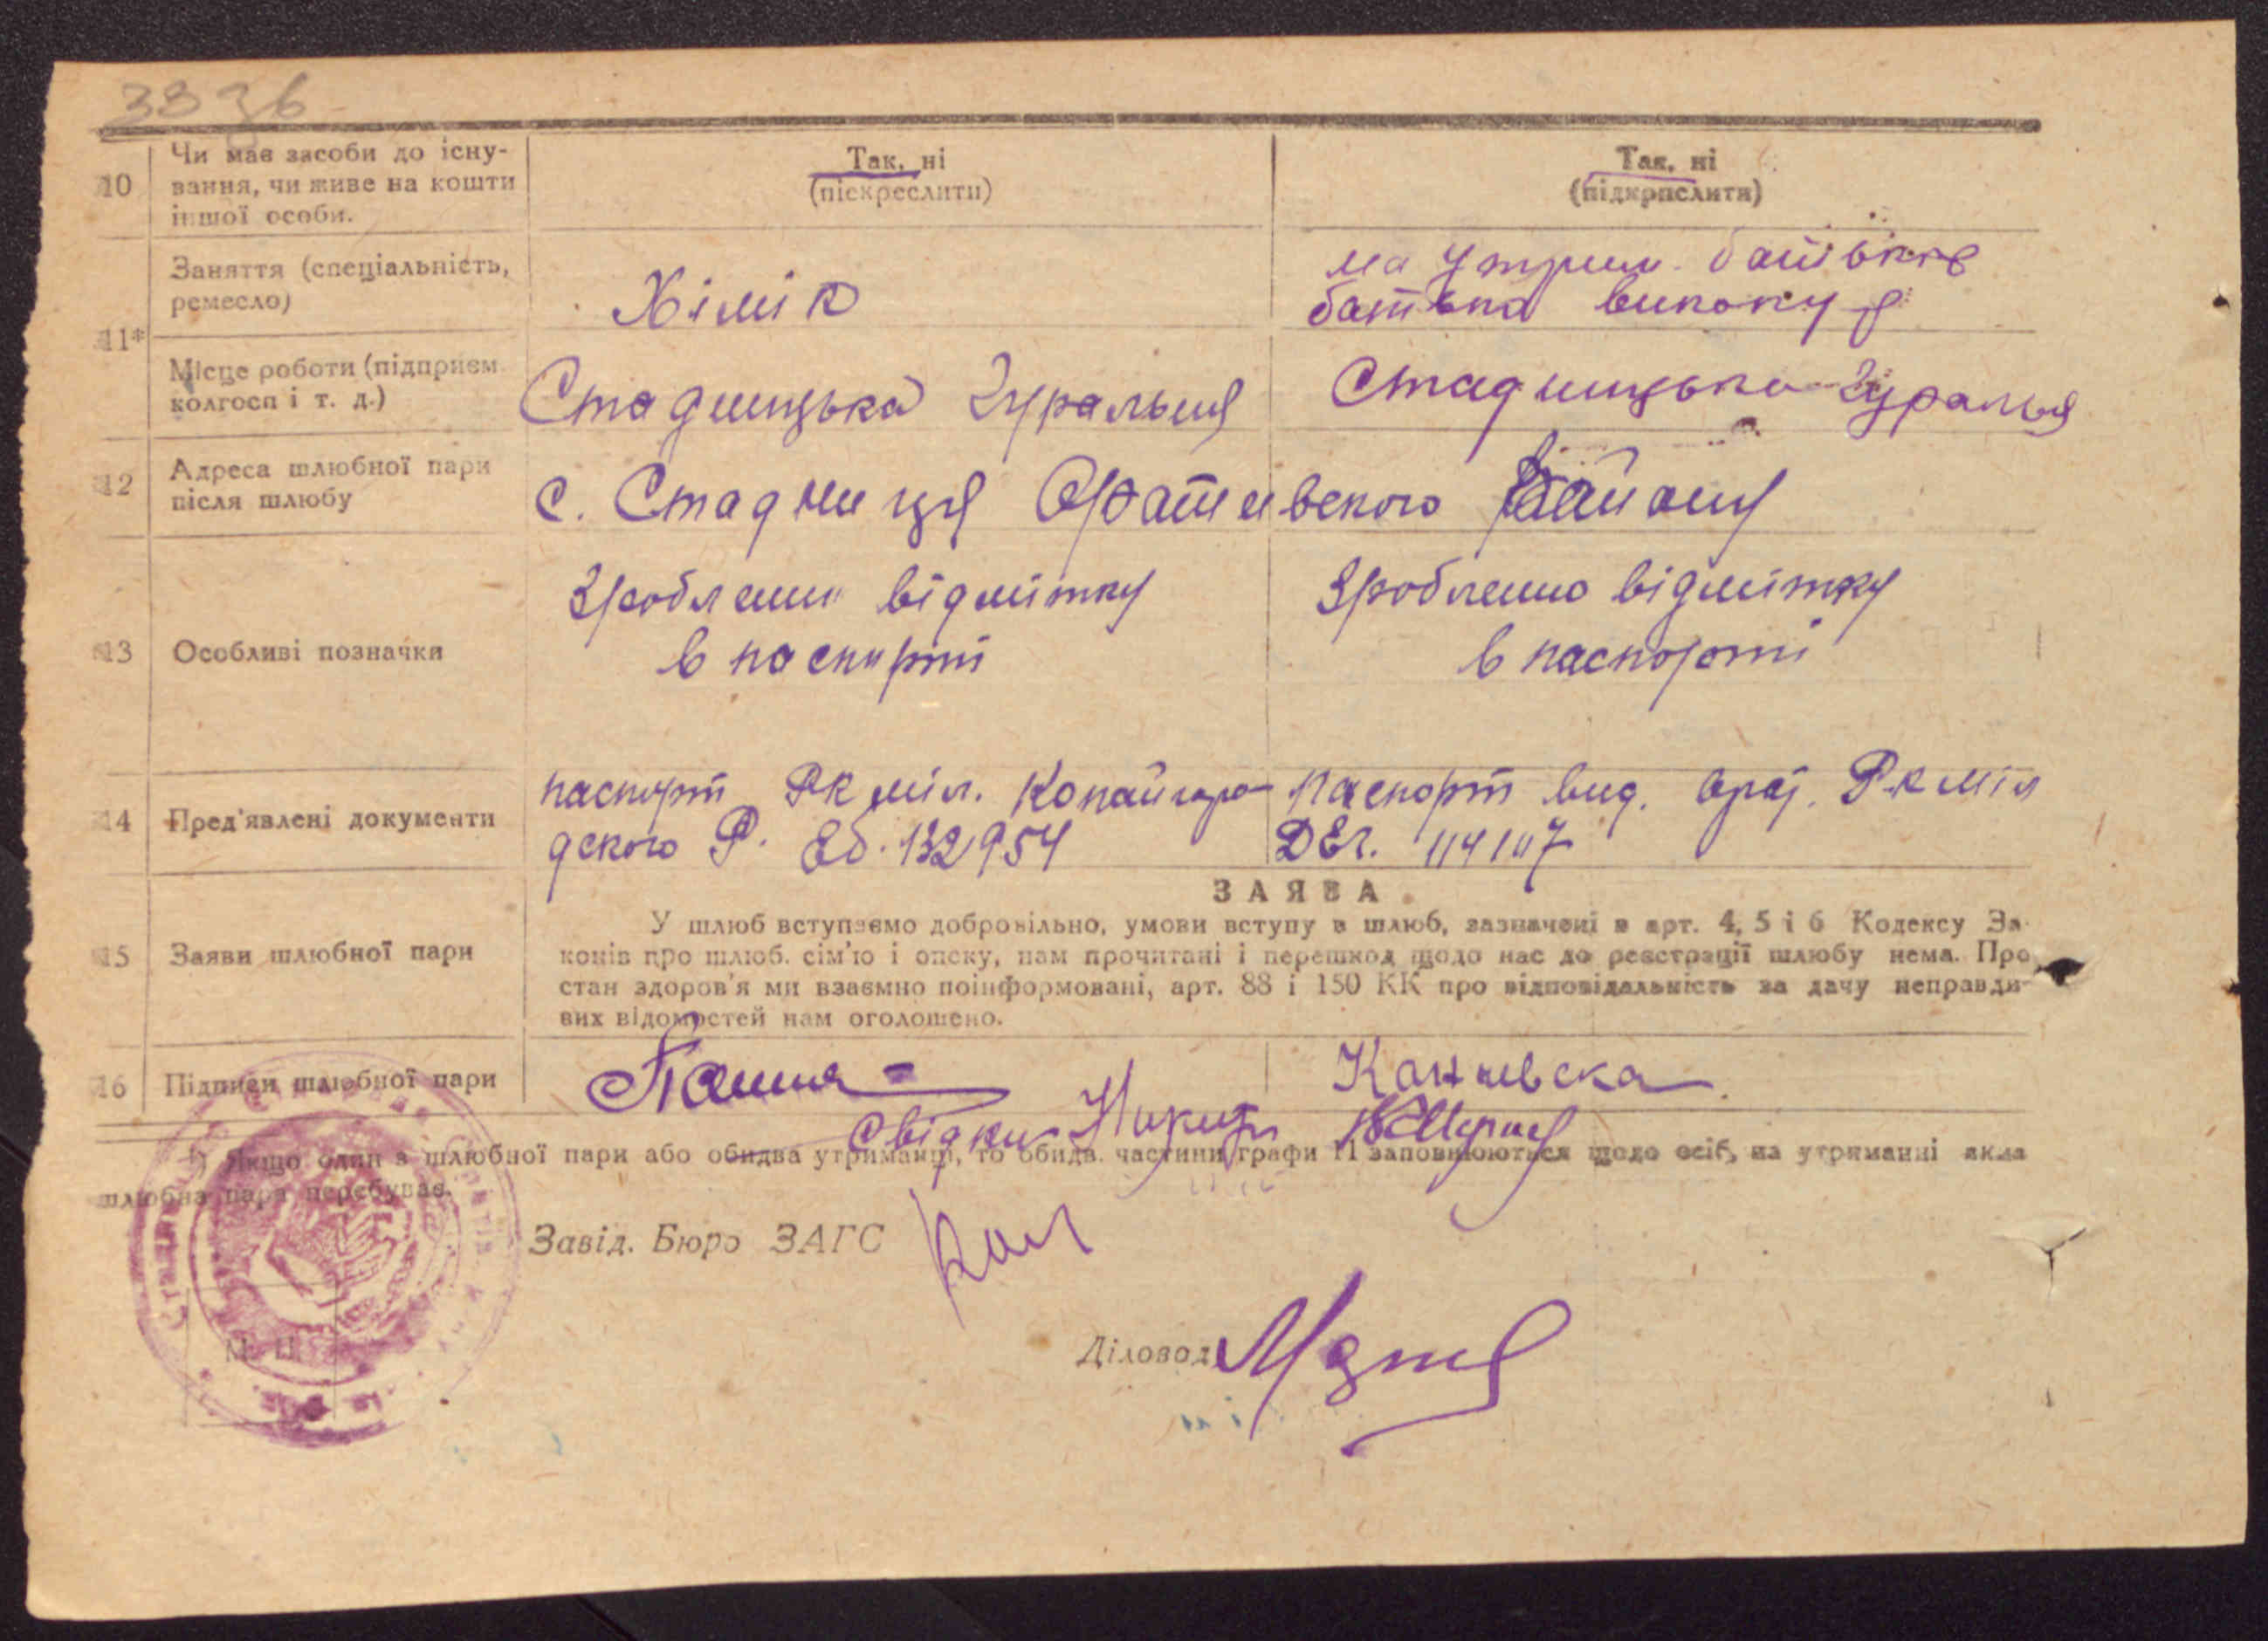 3836
10 Чи має засоби до існування, чи живе на кошти іншої особи.
Так, ні
(піскреслити)
Так, ні
(підкрпслити)
11* Заняття (спеціальність,
ремесло)
Хімік
на утрим. батьків
батько виконує
Місце роботи (підприєм
колгосп і т. д.)
Стадницька Гуральня
Стадницька Гуральня
12 Адреса шлюбної пари
після шлюбу
с. Стадниця Оратівського району
13 Особливі позначки
Зроблено відмітку
в паспорті
Зроблено відмітку
в паспорті
14 Пред'явлені документи
паспорт РК міл. Копайгоро
дского Р. 132954
паспорт вид. Орат. РК міл
114107
15 Заяви шлюбної пари
ЗАЯВА
У шлюб вступаємо добровільно, умови вступу в шлюб, зазначені в арт. 4, 5 і 6 Кодексу За-
конів про шлюб. сім'ю і опеку, нам прочитані і перешкод щодо нас до реєстрації шлюбу нема. Про
стан здоров'я ми взаємно поінформовані, арт. 88 і 150 КК про відповідальність за дачу неправди-
вих відомостей нам оголошено.
16 Підписи шлюбної пари
Канивска
Свідки
*) Якщо один з шлюбної пари або обидва утриманці, то обидв. частини графи 11 заповнюються щодо осіб, на утриманні яких
шлюбна пара перебуває.
Завід. Бюро ЗАГС
М. П.
Діловод